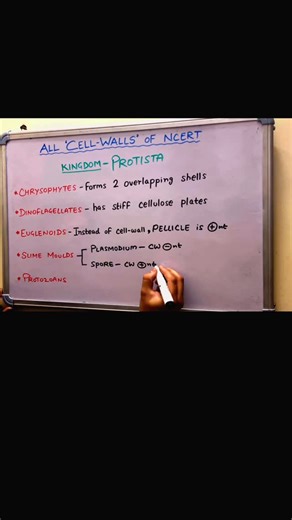 ALL "CELL-WALLS" OF NCERT
KINGDOM - PROTISTA
* CHRYSOPHYTES - Forms 2 overlapping shells
* DINOFLAGELLATES - has stiff cellulose plates
* EUGLENOIDS - Instead of cell-wall, PELLICLE is ⊕nt
* SLIME MOULDS - PLASMODIUM - CW ⊖nt
SPORE - CW ⊕nt
* PROTOZOANS